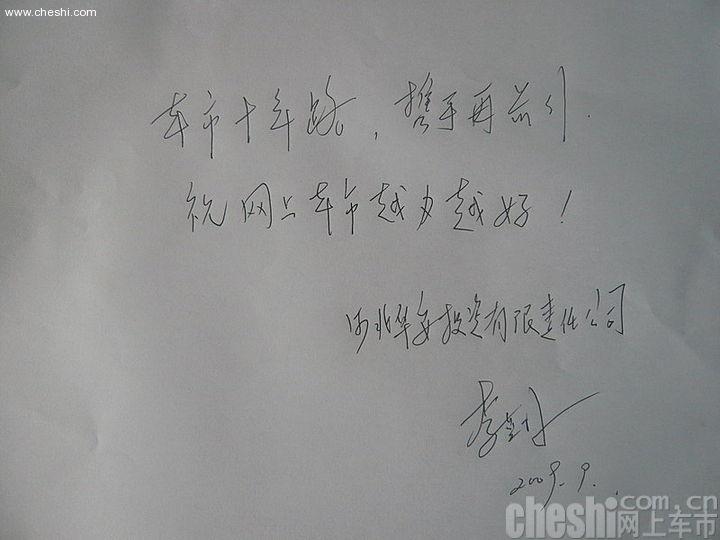 www.cheshi.com
车市十年路，携手再前行.
祝网上车市越办越好！
河北华安投资有限责任公司
李
2009.9.
cheshi.com.cn
网上车市